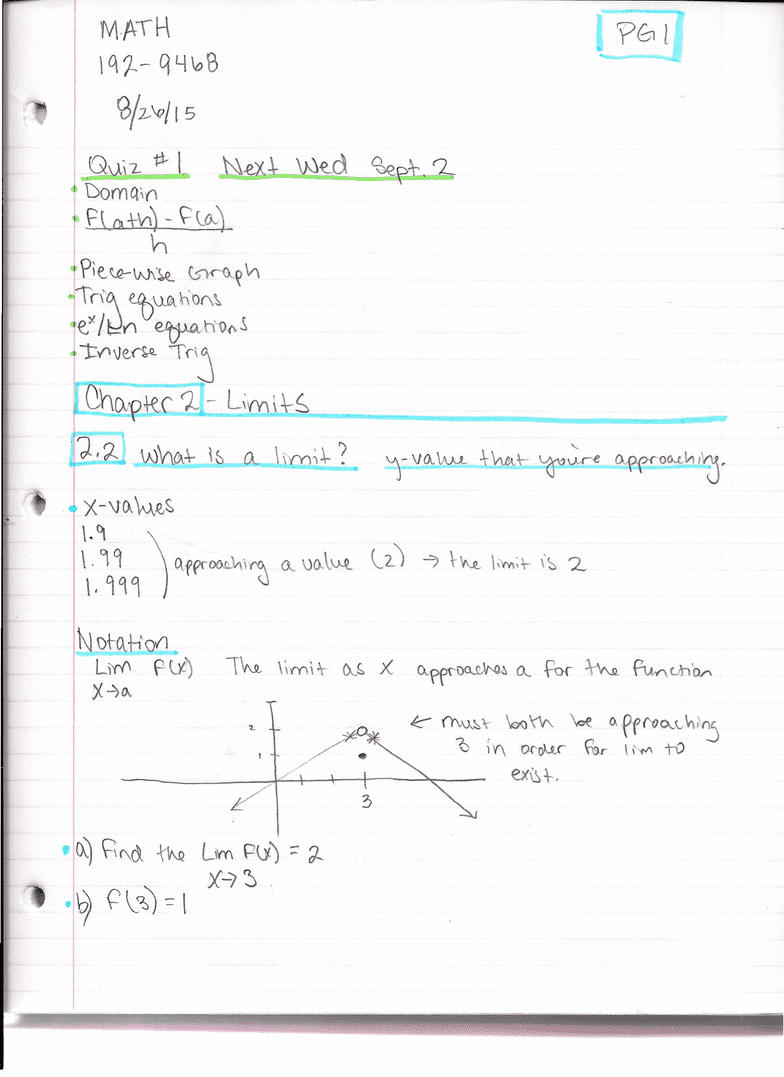 MATH
PG 1
192-9468
8/26/15
Quiz #1 Next Wed Sept. 2
• Domain
• F(a+h) - F(a)
h
• Piece-wise Graph
• Trig equations
• eˣ/Ln equations
• Inverse Trig
Chapter 2 - Limits
2.2 What is a limit? y-value that you're approaching.
• X-values
1.9
1.99
1.999
approaching a value (2) → the limit is 2
Notation
Lim F(x) The limit as X approaches a for the function
X→a
2
1
3
← must both be approaching
3 in order for lim to
exist.
• a) Find the Lim F(x) = 2
X→3
• b) F(3) = 1